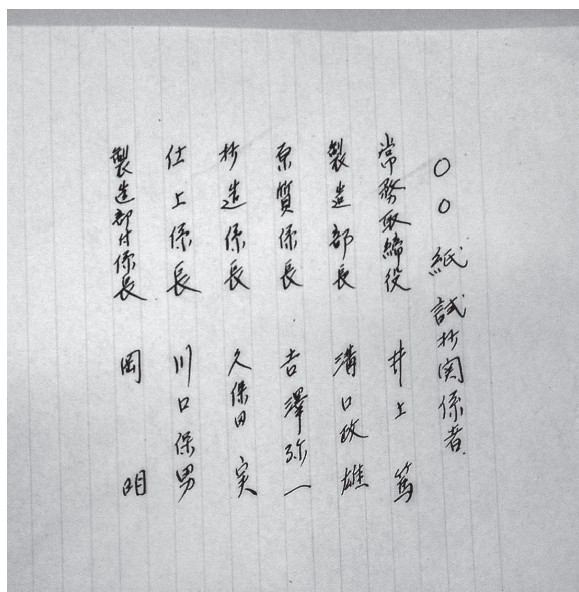 〇〇紙試抄関係者
常務取締役 井上篤
製造部長 溝口政雄
原質係長 吉澤弥一
抄造係長 久保田実
仕上係長 川口保男
製造部付係長 岡明